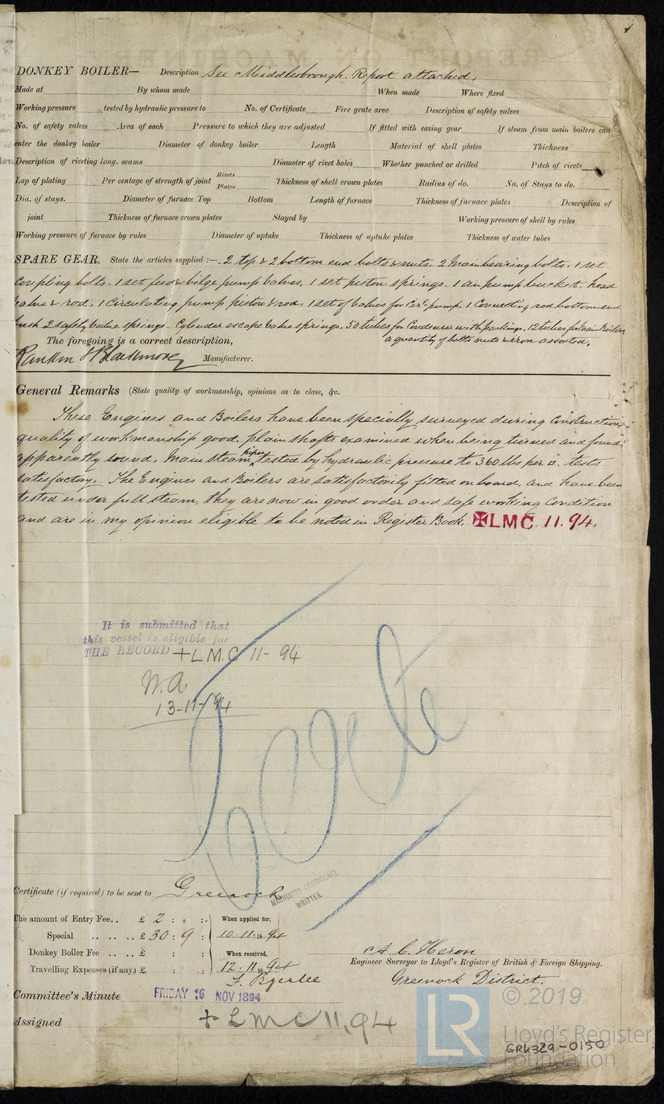 DONKEY BOILER— Description See Middlesbrough Report attached.
Made at By whom made When made Where fixed
Working pressure tested by hydraulic pressure to No. of Certificate Fire grate area Description of safety valves
No. of safety valves Area of each Pressure to which they are adjusted If fitted with easing gear If steam from main boilers can
enter the donkey boiler Diameter of donkey boiler Length Material of shell plates Thickness
Description of riveting long. seams Diameter of rivet holes Whether punched or drilled Pitch of rivets
Lap of plating Per centage of strength of joint Rivets Plates Thickness of shell crown plates Radius of do. No. of Stays to do.
Dia. of stays. Diameter of furnace Top Bottom Length of furnace Thickness of furnace plates Description of
joint Thickness of furnace crown plates Stayed by Working pressure of shell by rules
Working pressure of furnace by rules Diameter of uptake Thickness of uptake plates Thickness of water tubes
SPARE GEAR. State the articles supplied:— 2 top & 2 bottom end bolts & nuts. 2 Main bearing bolts. 1 set
coupling bolts. 1 set feed & bilge pump valves. 1 set piston springs. 1 air pump bucket, head
valve & rod. 1 Circulating pump piston & rod. 1 set of valves for Cir. pump. 1 Connecting rod bottom end
bush 2 safety valve springs. Cylinder escape valve springs. 50 tubes for Condenser with packings. 12 tubes for Main Boilers
a quantity of bolts nuts & iron assorted.
The foregoing is a correct description,
Rankin & Blackmore Manufacturer.
General Remarks (State quality of workmanship, opinions as to class, &c.
These Engines and Boilers have been specially surveyed during construction,
quality of workmanship good, plain shafts examined when being turned and found
apparently sound. Main steam pipes tested by hydraulic pressure to 360 lbs per □. tests
satisfactory. The Engines and Boilers are satisfactorily fitted on board, and have been
tested under full steam, they are now in good order and safe working condition
and are in my opinion eligible to be noted in Register Book. ✠LMC 11.94.
It is submitted that
this vessel is eligible for
THE RECORD +LMC 11-94
W.A.
13-11-94
Certificate (if required) to be sent to Greenock
MACHINERY CERTIFICATE
WRITTEN.
The amount of Entry Fee.. £ 2 : " : When applied for,
Special .. .. .. £ 30 : 9 : 10.11.94
Donkey Boiler Fee .. £ : : When received,
Travelling Expenses (if any) £ : : 12.11.94
A. C. Heron
Engineer Surveyor to Lloyd's Register of British & Foreign Shipping.
Greenock District.
Committee's Minute FRIDAY 16 NOV 1894
Assigned + LMC 11.94
LR
© 2019
Lloyd's Register
Foundation
GRK329-0150